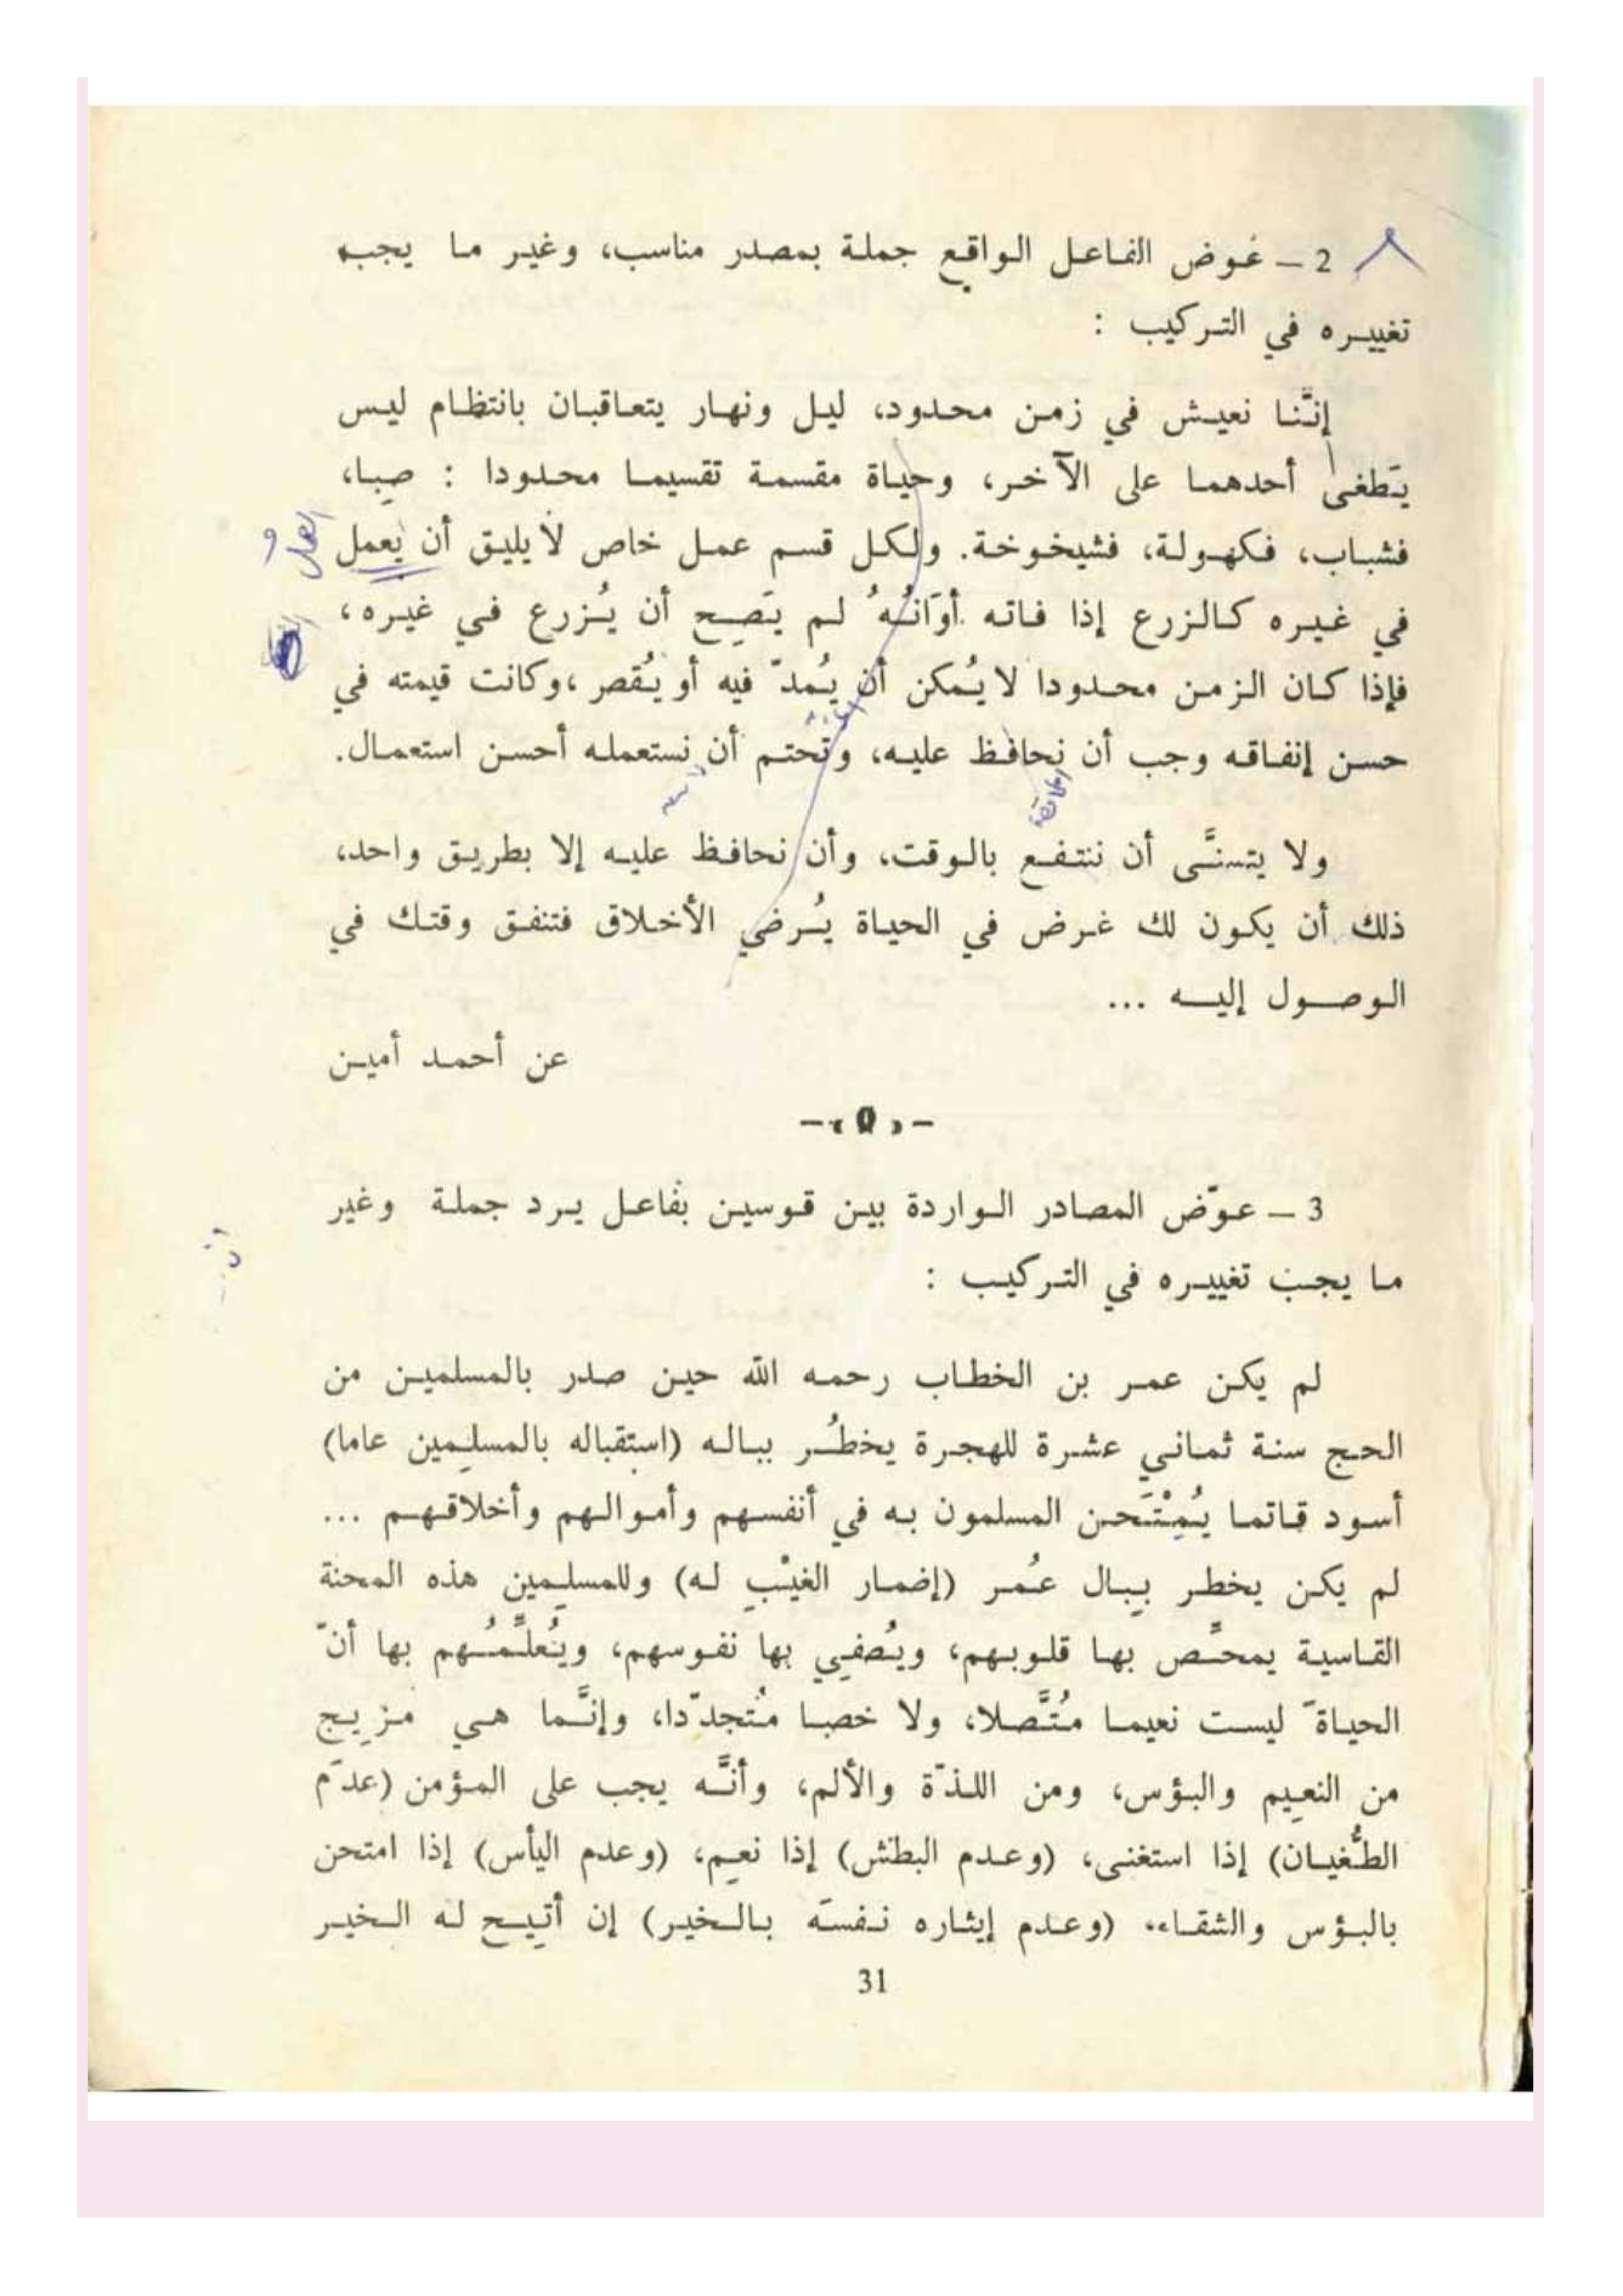 2 ــ عوض الفاعل الواقع جملة بمصدر مناسب، وغير ما يجب
تغييره في التركيب :
إنَّنا نعيش في زمن محدود، ليل ونهار يتعاقبان بانتظام ليس
يَطغى أحدهما على الآخر، وحياة مقسمة تقسيما محدودا : صِبا،
فشباب، فكهولة، فشيخوخة. ولكل قسم عمل خاص لا يليق أن يُعمل
في غيره كالزرع إذا فاته أوَانُهُ لم يَصِح أن يُزرع في غيره،
فإذا كان الزمن محدودا لا يُمكن أن يُمدّ فيه أو يُقصر، وكانت قيمته في
حسن إنفاقه وجب أن نحافظ عليه، وتحتم أن نستعمله أحسن استعمال.
العمل
المحافظة
ولا يتسنَّى أن ننتفع بالوقت، وأن نحافظ عليه إلا بطريق واحد،
ذلك أن يكون لك غرض في الحياة يُرضي الأخلاق فتنفق وقتك في
الوصول إليه ...
عن أحمد أمين
3 ــ عوّض المصادر الواردة بين قوسين بفاعل يرد جملة وغير
ما يجب تغييره في التركيب :
لم يكن عمر بن الخطاب رحمه الله حين صدر بالمسلمين من
الحج سنة ثماني عشرة للهجرة يخطُر بباله (استقباله بالمسلِمين عاما)
أسود قاتما يُمْتَحن المسلمون به في أنفسهم وأموالهم وأخلاقهم ...
لم يكن يخطر بِبال عُمر (إضمار الغيْبِ له) وللمسلِمين هذه المحنة
القاسية يمحَّص بها قلوبهم، ويُصفي بها نفوسهم، ويُعلِّمُهم بها أنّ
الحياةَ ليست نعيما مُتَّصلا، ولا خصبا مُتجددّا، وإنَّما هي مزيج
من النعيم والبؤس، ومن اللذّة والألم، وأنَّه يجب على المؤمن (عدَم
الطُّغيان) إذا استغنى، (وعدم البطش) إذا نعِم، (وعدم اليأس) إذا امتحن
بالبؤس والشقاء، (وعدم إيثاره نفسَه بالخير) إن أتيح له الخير
31